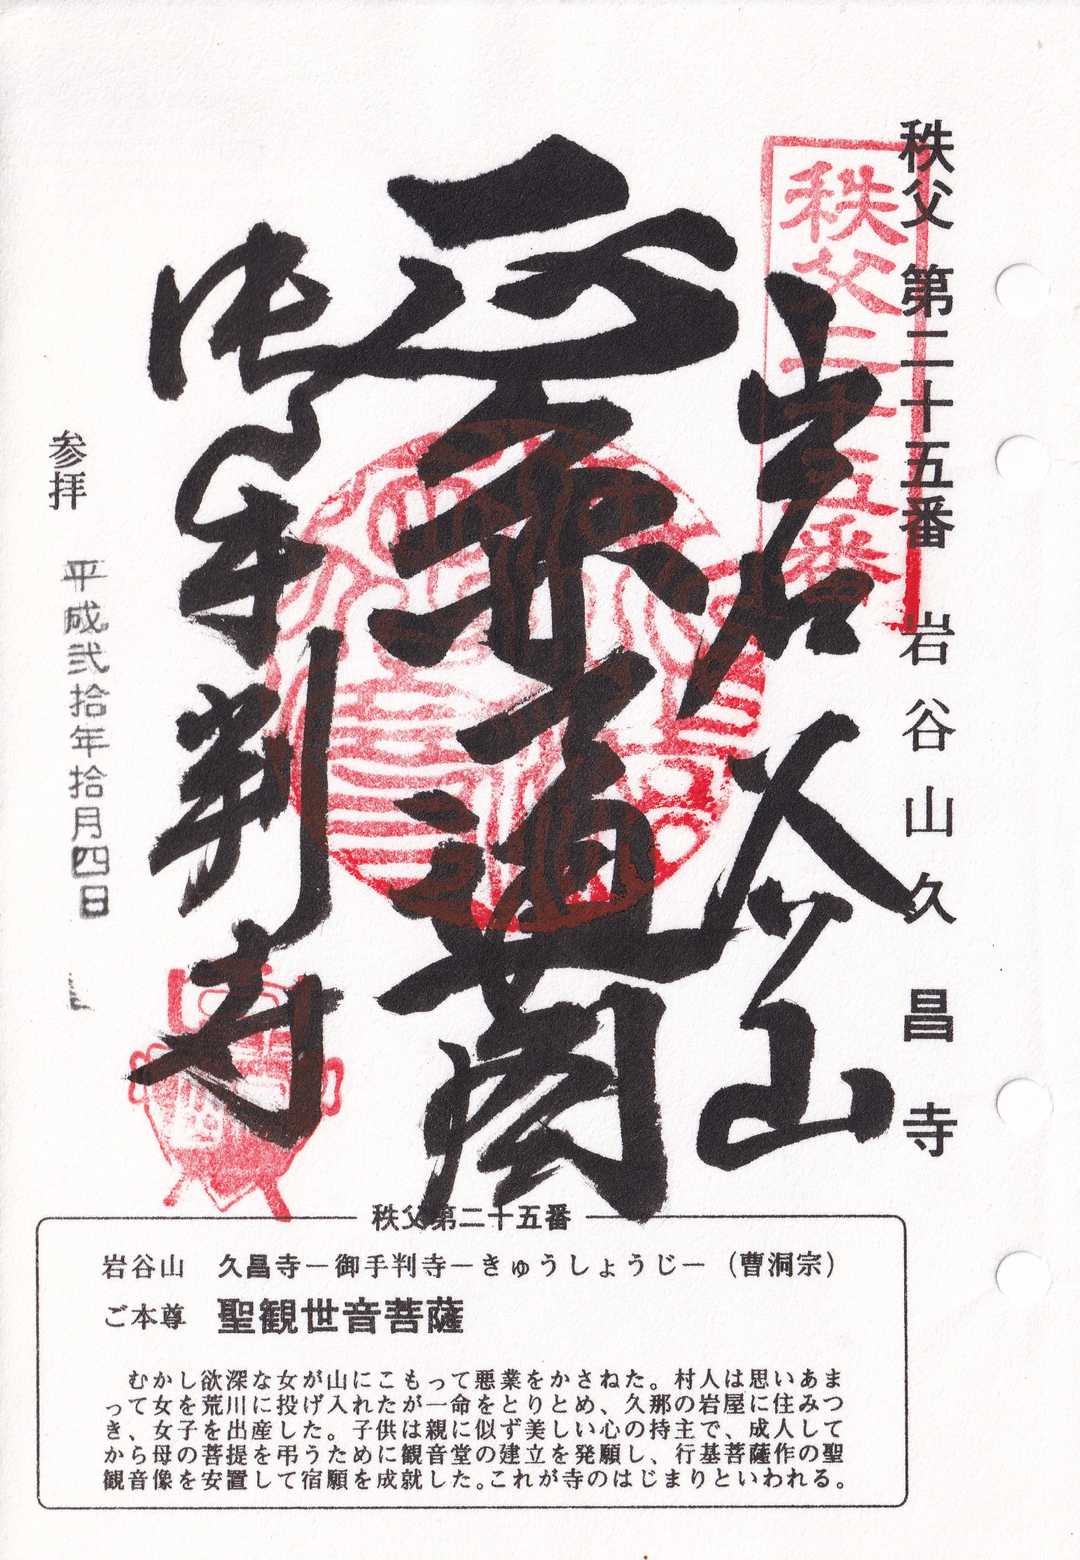 秩父 第二十五番 岩谷山久昌寺
秩父二十五番
岩谷山
御手判寺
参拝 平成弐拾年拾月四日
秩父第二十五番
岩谷山 久昌寺―御手判寺―きゅうしょうじ―(曹洞宗)
ご本尊 聖観世音菩薩
むかし欲深な女が山にこもって悪業をかさねた。村人は思いあま
って女を荒川に投げ入れたが一命をとりとめ、久那の岩屋に住みつ
き、女子を出産した。子供は親に似ず美しい心の持主で、成人して
から母の菩提を弔うために観音堂の建立を発願し、行基菩薩作の聖
観音像を安置して宿願を成就した。これが寺のはじまりといわれる。